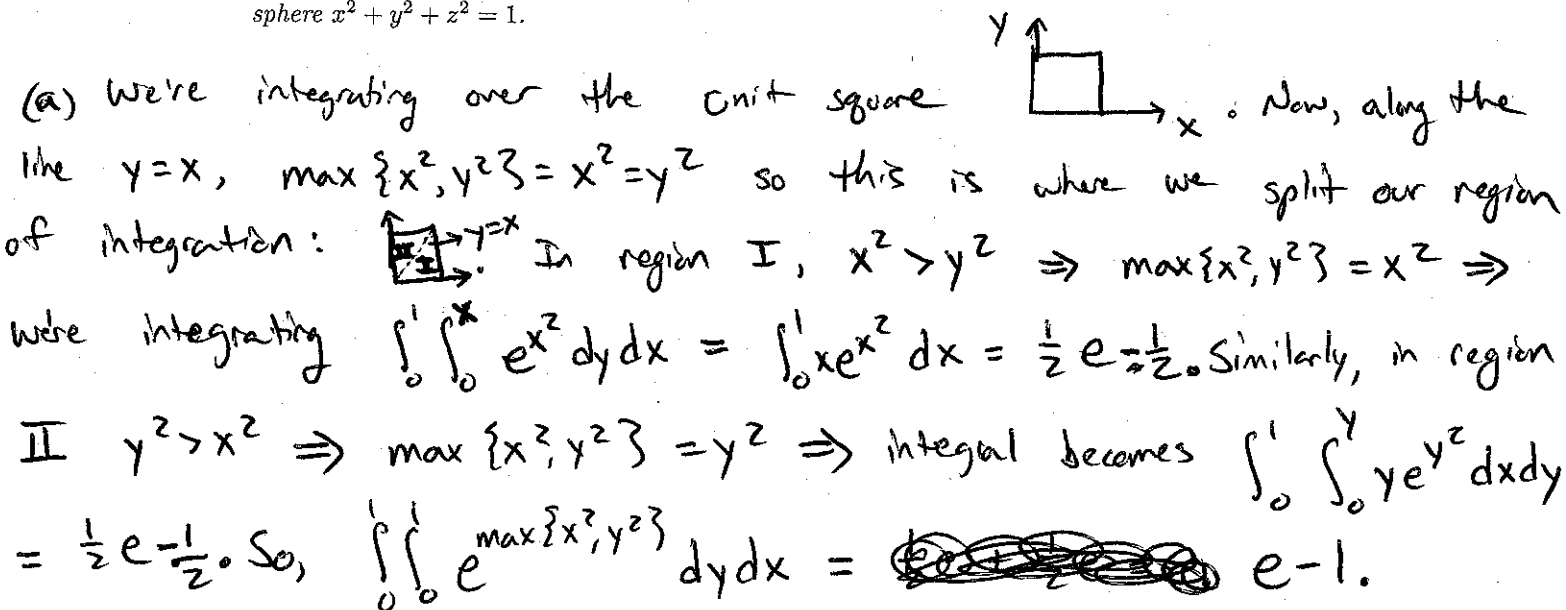 sphere x² + y² + z² = 1.
(a) We're integrating over the unit square y x . Now, along the
line y=x, max {x², y²} = x² = y² so this is where we split our region
of integration: II I y=x . In region I, x² > y² ⇒ max{x², y²} = x² ⇒
we're integrating ∫₀¹ ∫₀ˣ e^{x²} dy dx = ∫₀¹ xe^{x²} dx = ½ e - ½. Similarly, in region
II y² > x² ⇒ max {x², y²} = y² ⇒ integral becomes ∫₀¹ ∫₀ʸ ye^{y²} dxdy
= ½ e - ½. So, ∫₀¹ ∫₀¹ e^{max{x², y²}} dydx = e-1.